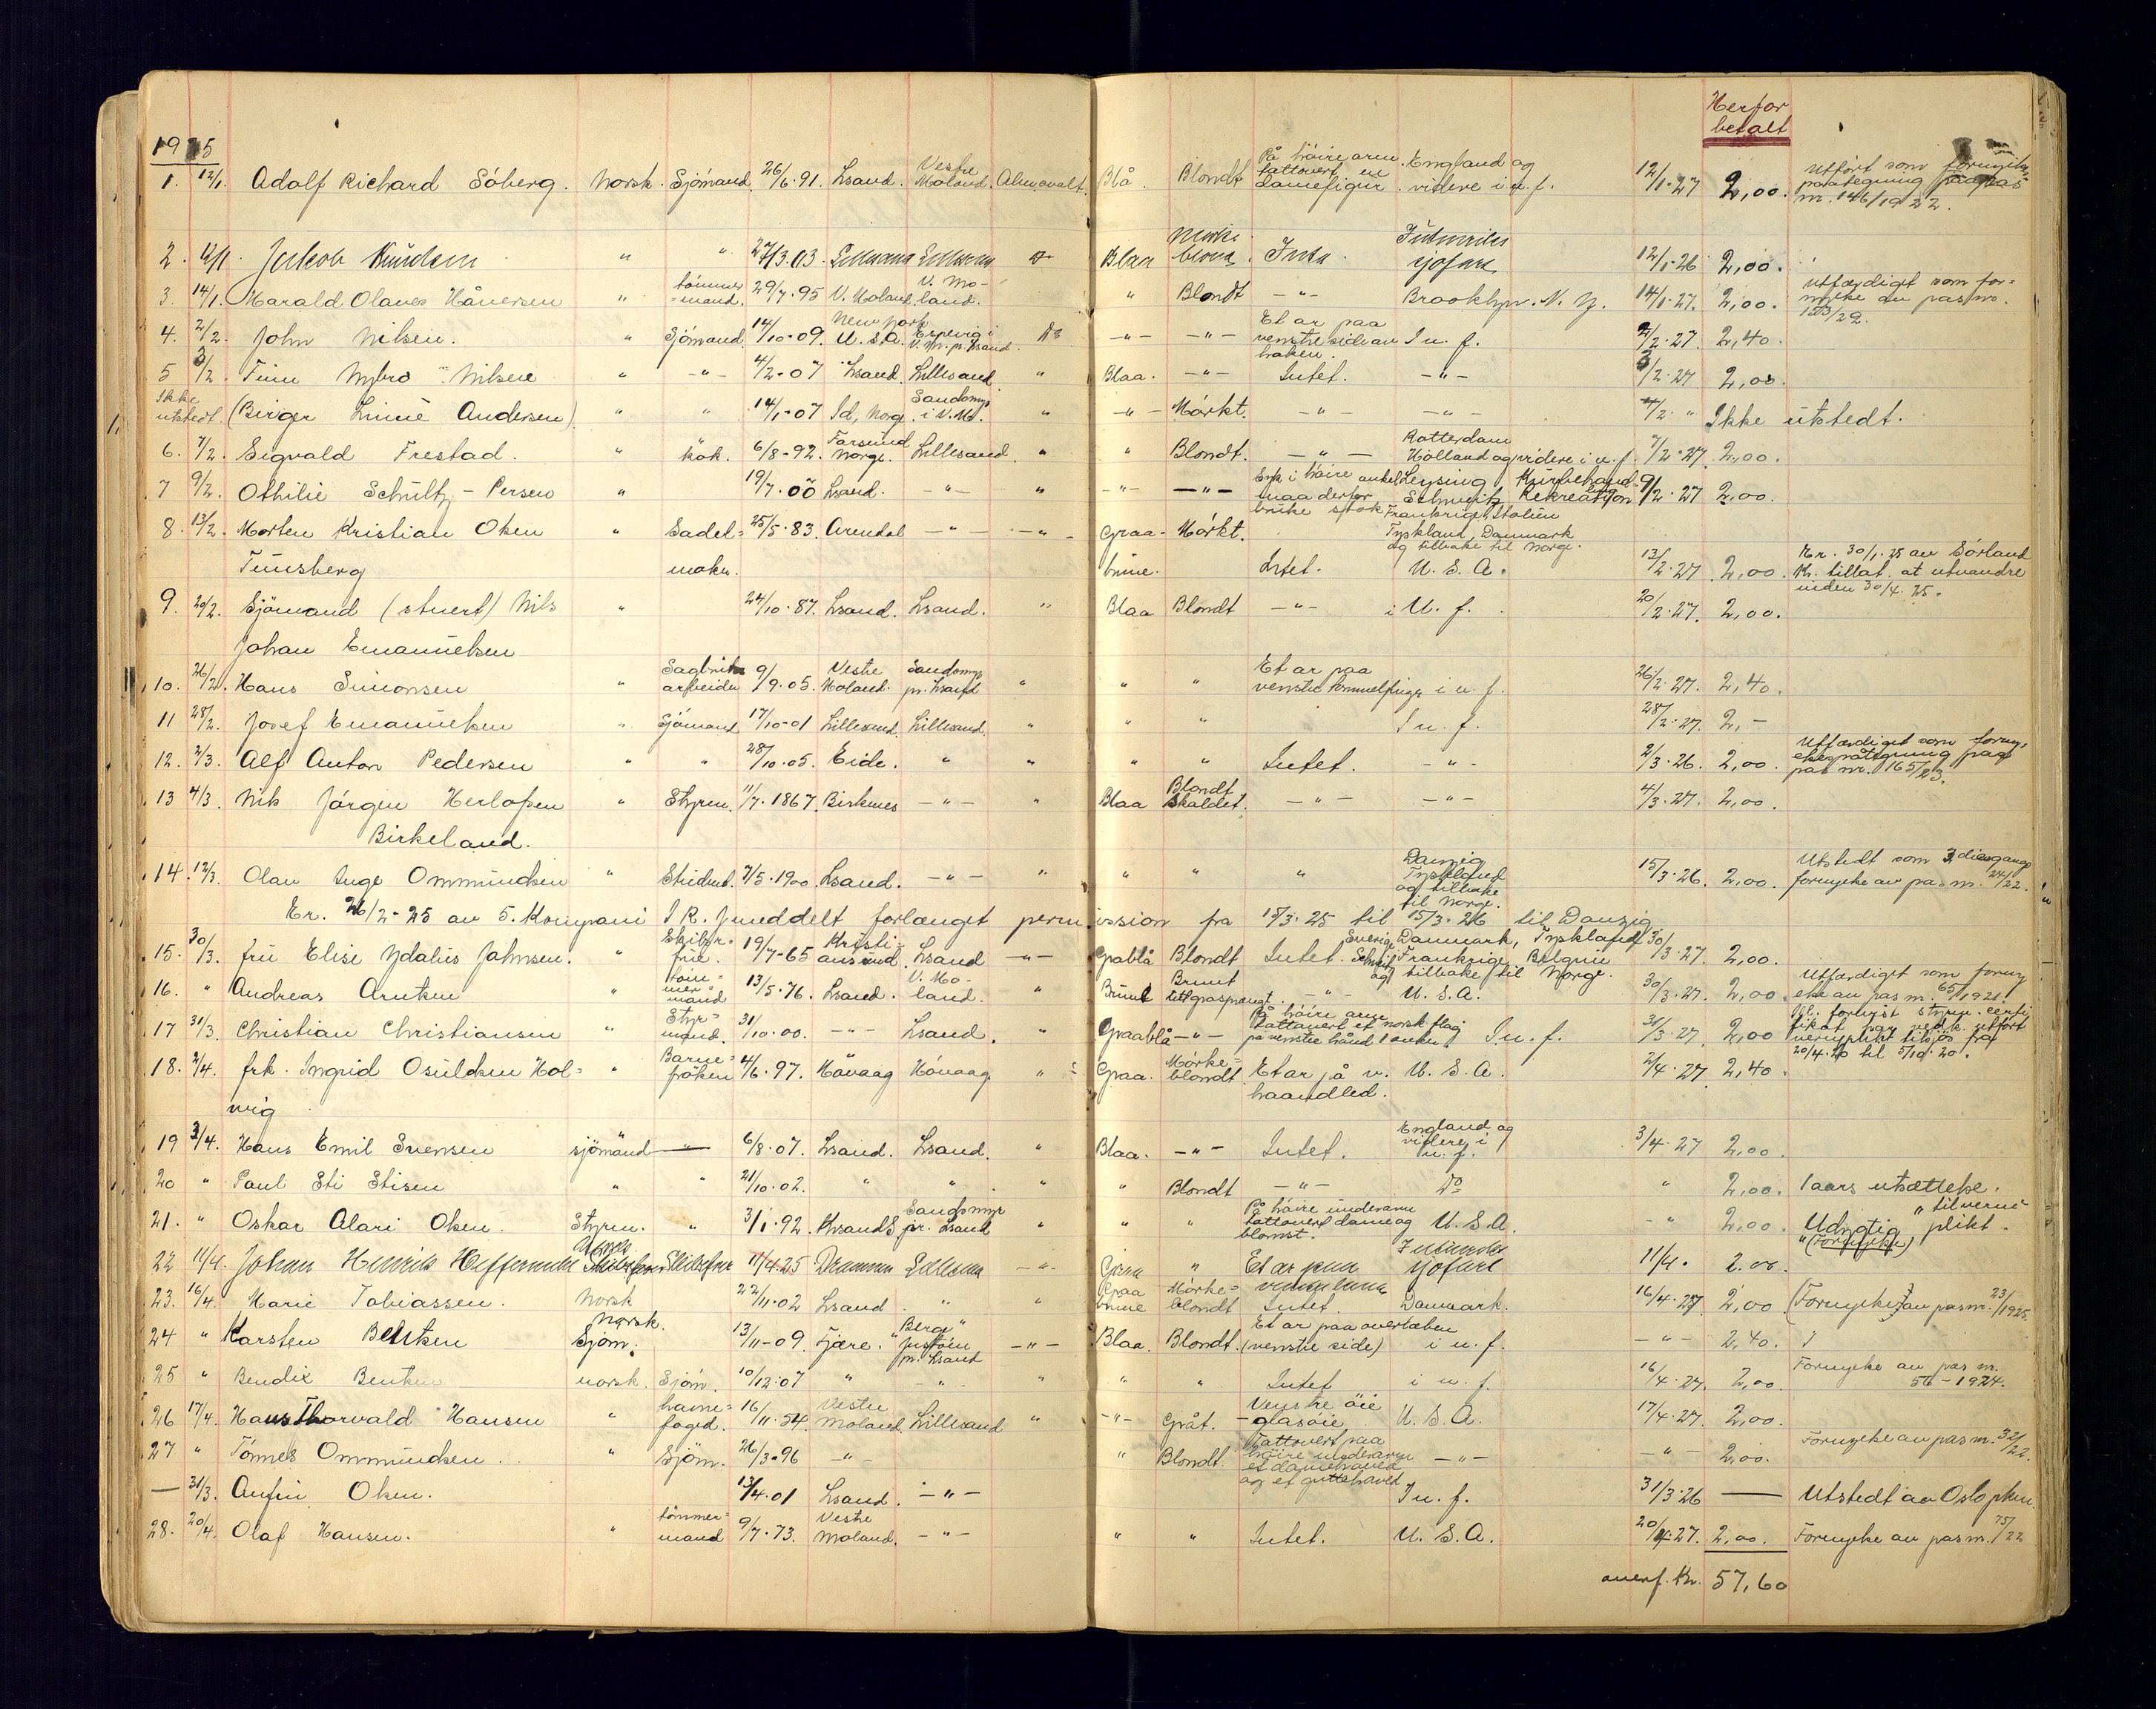 Herfor
betalt
1925
1. 12/1. Adolf Richard Sóberg. Norsk. Sjómand. 26/6.91. Lsand. Vestre Moland. Almuevalt. Blå. Blondt På hóire arm tattovert en damefigur. England og videre i u.f. 12/1.27 2,00. Utfört som fornyelse paategning paa pas nr. 146/1922.
2. 12/1. Jakob Knudsen " " 27/3.03. Do Blaa Mörke blond. Intet. Indenriks sjöfart 12/1.26 2,00.
3. 14/1. Harald Olaves Hånersen " tömmer=mand. 29/7.95 V. Moland V. Mo-land. " Blondt -"- Brooklyn. N. Y. 14/1.27. 2,00. Utfærdiget som for=nyelse av pas no. 123/22.
4. 2/2. John Nilsen. " Sjómand 14/10.09. New York U.S.A. Espevig i V.M. pr. Lsand. Do -"- -"- Et ar paa venstre side av haken. I u. f. 2/2.27 2,40.
5 3/2. Finn Nybro Nilsen " -"- 4/2-07 Lsand. Lillesand. " Blaa. -"- Intet. -"- 3/2.27 2,00.
Ikke utstedt. (Birger Linné Andersen) " " 14/1-07 Id, Norge. Sandsmyr i V.M. " -"- Mórkt. -"- -"- 4/2 " Ikke utstedt.
6. 7/2. Sigvald Frestad. " kok. 6/8-92. Farsund Norge. Lillesand. " " Blondt. -"- Rotterdam Holland og videre i u.f. 7/2-27. 2,00.
7 9/2. Othilie Schultz-Persen " 19/7.00 Lsand. -"- " -"- -"- Syk i hóire ankel maa derfor bruke stok Leysing Schweitz Kurbehandling Rekreation 9/2.27 2,00.
8. 13/2. Morten Kristian Olsen " Sadel= 25/5.83. Arendal -"- -"- Graa- Mórkt. Frankrige, Italien Tyskland, Danmark og tilbake til Norge.
Tünsberg maker. brune. Intet. U. S. A. 13/2.27 2,00. Kr. 30/1.25 av Sórland K. tillat. at utvandre inden 30/4.25.
9. 20/2. Sjómand (stuert) Nils " 24/10.87. Lsand. Lsand. " Blaa Blondt -"- i U. f. 20/2.27. 2,00.
Johan Emanuelsen
10. 26/2. Hans Simonsen " Sagbruks arbeider 9/9.05. Vestre Moland. Sandsmyr pr. Lsand " " " Et ar paa venstre tommelfinger i u. f. 26/2.27. 2,40.
11 28/2. Josef Emanuelsen " Sjómand 17/10-01 Lillesand. Lillesand. " " " I u. f. 28/2.27. 2,-
12. 2/3. Alf Anton Pedersen " " 28/10.05. Eide. " " " " Intet. -"- 2/3.26. 2,00. Utfærdiget som forny-elsespåtegning paa pas nr. 165/23.
13 4/3. Nils Jórgen Herlofsen " Styrm. 11/7.1867. Birkenes -"- " Blaa Blondt Skaldet. -"- -"- 4/3.27. 2,00.
Birkeland.
14. 12/3. Olav Inge Ommundsen " Student. 7/5.1900 Lsand. -"- " " " " Danzig Tyskland og tilbake til Norge. 15/3.26. 2,00. Utstedt som 3die gangs fornyelse av pas nr. 24/22.
Er. 26/2-25 av 5. Kompani I.R. 7 meddelt forlænget permission fra 15/3.25 til 15/3.26 til Danzig
15. 30/3. frü Elise Ydalüs Jahnsen. " Skibsfr=frue. 19/7-65 Kristi=ansund Lsand -"- Gråblå Blondt Intet. Sverige, Danmark, Tyskland Schweitz Frankrige, Belgien og tilbake til Norge. 30/3.27 2,00.
16. " Andreas Arntsen " töm=mer=mand 13/5.76. Lsand. V. Mo-land. " Brune Brunt lettgraasprængt. -"- U.S.A. 30/3.27. 2,00. Utfærdiget som forny else av pas nr. 65/1921.
17 31/3. Christian Christiansen " Styr=mand. 31/10.00. -"- Lsand. " Graablå -"- På hóire arm tattovert et norsk flag på venstre hånd 1 anker I u. f. 31/3.27. 2,00
18. 2/4. frk. Ingrid Osüldsen Hol= " Barne=fröken 4/6.97. Hóvaag Hóvaag " Graa. Mórke=blondt Et ar på v. haandled. U. S. A. 2/4.27. 2,40. 20/4.20 til 5/10.20.
vig
19 3/4. Hans Emil Svensen sjómand — 6/8.07. Lsand. Lsand. " Blaa. -"- Intet. England og videre i u.f. 3/4.27 2,00.
20 " Paul Sti Stisen " " 21/10.02. " " " " Blondt -"- Do " 2,00. 1 aars utsættelse. " til verne plikt.
21. " Oskar Alari Olsen. Styrm. " 3/1.92. Krsand S. Sandsmyr pr. Lsand " " " På hóire underarm tattovert dame og blomst. U.S.A. -" 2,00. Udygtig " (Fornyelse)
22 11/4. Johan Henrik Heffermehl Norsk Skibsfører 11/4.25 Drammen -"- Graa " Et ar paa Indenriks sjófart 11/4. 2.00.
23. 16/4. Marie Tobiassen. Norsk 22/11.02 Lsand. " " Graa brune Mórke=blondt Intet. Danmark. 16/4.27 2,00 (Fornyelse av pas nr. 23/1925.
24 " Karsten Bentsen Norsk. Sjóm. 13/11-09. Fjære. "Berge" Justöen pr. Lsand -"- Blaa. Blondt. Et ar paa overlæben (venstre side) i u. f. -"- 2,40.
25 " Bendix Bentsen norsk. Sjóm. 10/12.07 " -"- " " " Intet i u. f. 16/4.27. 2,00. Fornyelse av pas nr. 56-1924.
26 17/4. Hans Thorvald Hansen " havne=fogd. 16/11.54 Vestre Moland. Lillesand " -"- Gråt. Venstre óie -glasóie U. S. A. 17/4.27. 2,00.
27 " Tónnes Ommundsen. " Sjóm. 26/3-96 -"- " Blondt. Tattovert paa hóire underarm et damehoved og et guttehoved -"- -"- 2,00. Fornyelse av pas nr. 32/22.
— 31/3. Anfin Olsen. 13/4.01 Lsand. -"- I u. f. 31/3.26 — Utstedt av Oslo pkm.
28. 20/4. Olaf Hansen. " tómmer=mand 9/7.73. Vestre Moland. -"- " " Intet. U. S. A. 20/4.27. 2,00. Fornyelse av pas nr. 75/22
overf. Kr. 57,60